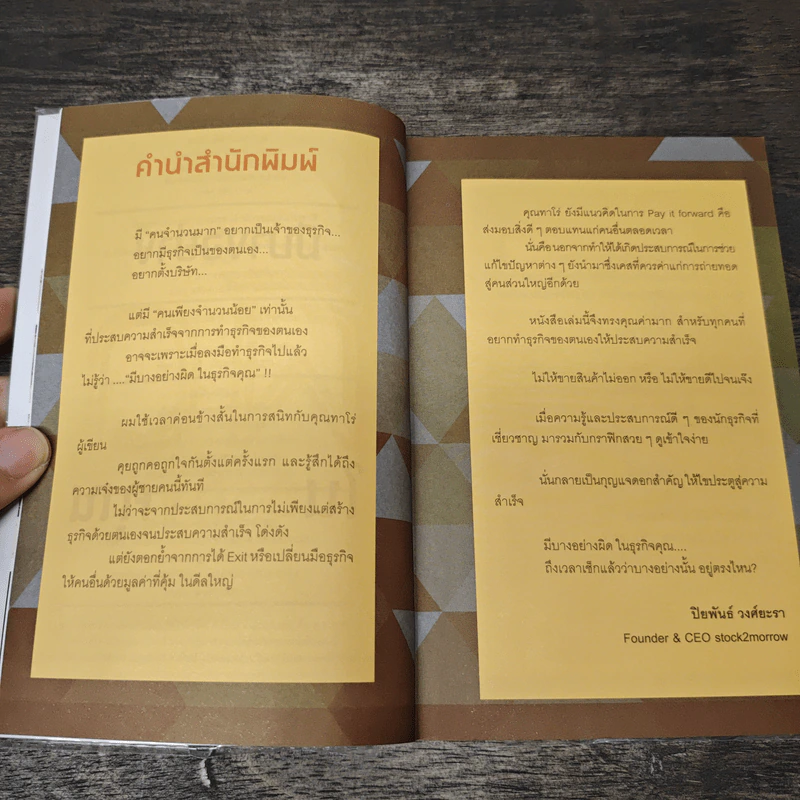 คำนำสำนักพิมพ์
มี “คนจำนวนมาก” อยากเป็นเจ้าของธุรกิจ...
อยากมีธุรกิจเป็นของตนเอง...
อยากตั้งบริษัท...
แต่มี “คนเพียงจำนวนน้อย” เท่านั้น
ที่ประสบความสำเร็จจากการทำธุรกิจของตนเอง
อาจจะเพราะเมื่อลงมือทำธุรกิจไปแล้ว
ไม่รู้ว่า ....“มีบางอย่างผิด ในธุรกิจคุณ” !!
ผมใช้เวลาค่อนข้างสั้นในการสนิทกับคุณทาโร่
ผู้เขียน
คุยถูกคอถูกใจกันตั้งแต่ครั้งแรก และรู้สึกได้ถึง
ความเจ๋งของผู้ชายคนนี้ทันที
ไม่ว่าจะจากประสบการณ์ในการไม่เพียงแต่สร้าง
ธุรกิจด้วยตนเองจนประสบความสำเร็จ โด่งดัง
แต่ยังตอกย้ำจากการได้ Exit หรือเปลี่ยนมือธุรกิจ
ให้คนอื่นด้วยมูลค่าที่คุ้ม ในดีลใหญ่
คุณทาโร่ ยังมีแนวคิดในการ Pay it forward คือ
ส่งมอบสิ่งดี ๆ ตอบแทนแก่คนอื่นตลอดเวลา
นั่นคือนอกจากทำให้ได้เกิดประสบการณ์ในการช่วย
แก้ไขปัญหาต่าง ๆ ยังนำมาซึ่งเคสที่ควรค่าแก่การถ่ายทอด
สู่คนส่วนใหญ่อีกด้วย
หนังสือเล่มนี้จึงทรงคุณค่ามาก สำหรับทุกคนที่
อยากทำธุรกิจของตนเองให้ประสบความสำเร็จ
ไม่ให้ขายสินค้าไม่ออก หรือ ไม่ให้ขายดีไปจนเจ๊ง
เมื่อความรู้และประสบการณ์ดี ๆ ของนักธุรกิจที่
เชี่ยวชาญ มารวมกับกราฟิกสวย ๆ ดูเข้าใจง่าย
นั่นกลายเป็นกุญแจดอกสำคัญ ให้ไขประตูสู่ความ
สำเร็จ
มีบางอย่างผิด ในธุรกิจคุณ....
ถึงเวลาเช็กแล้วว่าบางอย่างนั้น อยู่ตรงไหน?
ปิยพันธ์ วงศ์ยะรา
Founder & CEO stock2morrow